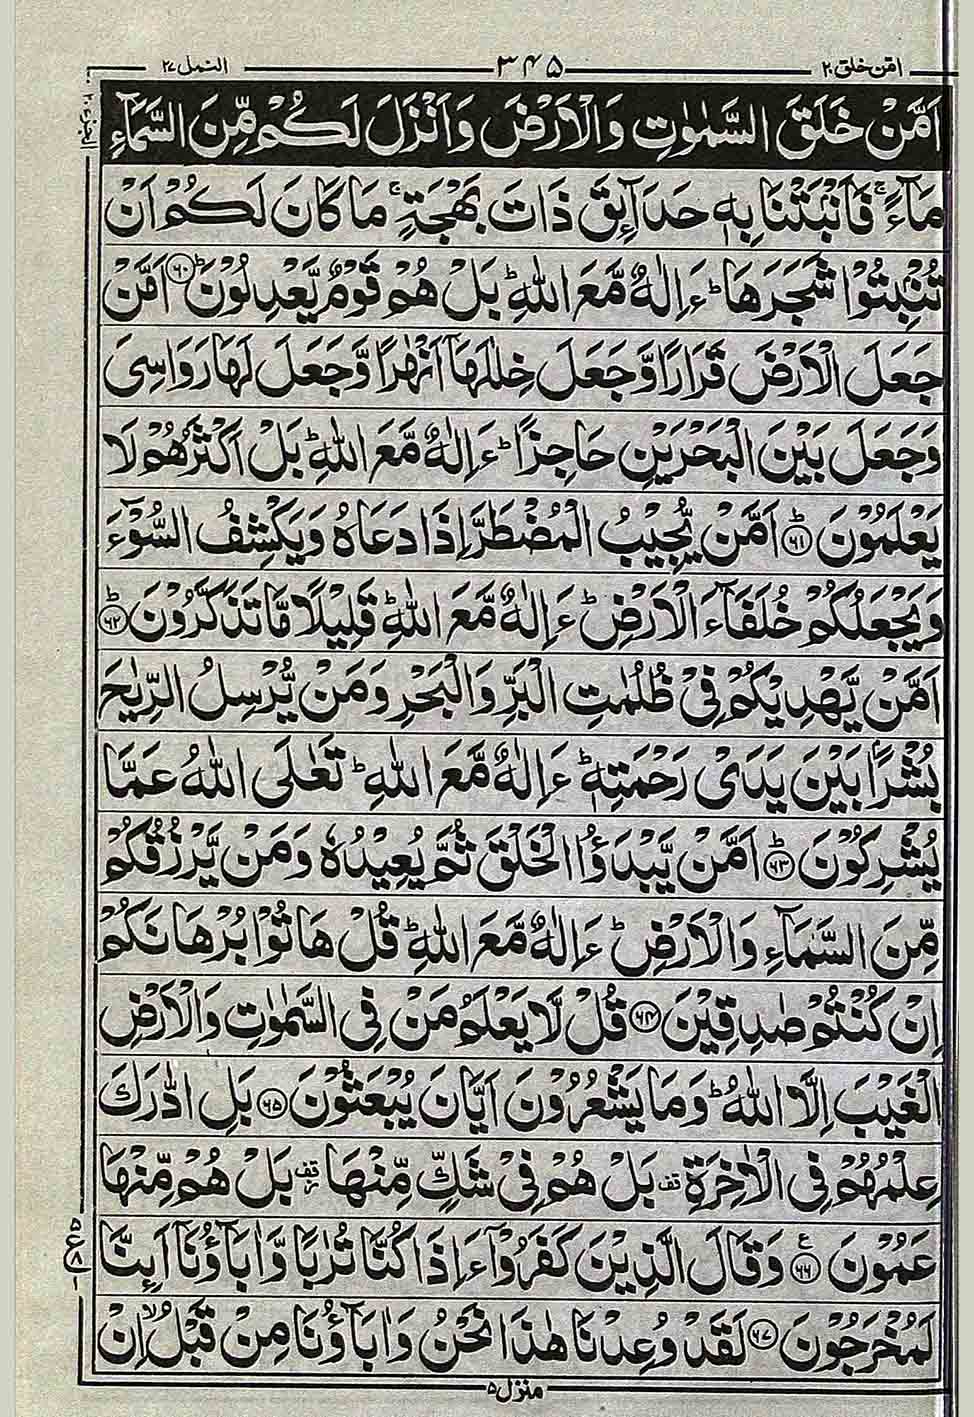 امّن خلق ٢٠
٣٤٥
النمل ٢٧
اَمَّنْ خَلَقَ السَّمٰوٰتِ وَالْاَرْضَ وَاَنْزَلَ لَكُمْ مِّنَ السَّمَآءِ
مَآءً ۚ فَاَنْۢبَتْنَا بِهٖ حَدَآئِقَ ذَاتَ بَهْجَةٍ ۚ مَا كَانَ لَكُمْ اَنْ
تُنْۢبِتُوْا شَجَرَهَا ؕ ءَاِلٰهٌ مَّعَ اللّٰهِ ؕ بَلْ هُمْ قَوْمٌ يَّعْدِلُوْنَ ؕ ﴿٦٠﴾ اَمَّنْ
جَعَلَ الْاَرْضَ قَرَارًا وَّجَعَلَ خِلٰلَهَاۤ اَنْهٰرًا وَّجَعَلَ لَهَا رَوَاسِيَ
وَجَعَلَ بَيْنَ الْبَحْرَيْنِ حَاجِزًا ؕ ءَاِلٰهٌ مَّعَ اللّٰهِ ؕ بَلْ اَكْثَرُهُمْ لَا
يَعْلَمُوْنَ ؕ ﴿٦١﴾ اَمَّنْ يُّجِيْبُ الْمُضْطَرَّ اِذَا دَعَاهُ وَيَكْشِفُ السُّوْٓءَ
وَيَجْعَلُكُمْ خُلَفَآءَ الْاَرْضِ ؕ ءَاِلٰهٌ مَّعَ اللّٰهِ ؕ قَلِيْلًا مَّا تَذَكَّرُوْنَ ؕ ﴿٦٢﴾
اَمَّنْ يَّهْدِيْكُمْ فِيْ ظُلُمٰتِ الْبَرِّ وَالْبَحْرِ وَمَنْ يُّرْسِلُ الرِّيٰحَ
بُشْرًاۢ بَيْنَ يَدَيْ رَحْمَتِهٖ ؕ ءَاِلٰهٌ مَّعَ اللّٰهِ ؕ تَعٰلَى اللّٰهُ عَمَّا
يُشْرِكُوْنَ ؕ ﴿٦٣﴾ اَمَّنْ يَّبْدَؤُا الْخَلْقَ ثُمَّ يُعِيْدُهٗ وَمَنْ يَّرْزُقُكُمْ
مِّنَ السَّمَآءِ وَالْاَرْضِ ؕ ءَاِلٰهٌ مَّعَ اللّٰهِ ؕ قُلْ هَاتُوْا بُرْهَانَكُمْ
اِنْ كُنْتُمْ صٰدِقِيْنَ ﴿٦٤﴾ قُلْ لَّا يَعْلَمُ مَنْ فِي السَّمٰوٰتِ وَالْاَرْضِ
الْغَيْبَ اِلَّا اللّٰهُ ؕ وَمَا يَشْعُرُوْنَ اَيَّانَ يُبْعَثُوْنَ ﴿٦٥﴾ بَلِ ادّٰرَكَ
عِلْمُهُمْ فِي الْاٰخِرَةِ قف بَلْ هُمْ فِيْ شَكٍّ مِّنْهَا قف بَلْ هُمْ مِّنْهَا
عَمُوْنَ ﴿٦٦﴾ ع وَقَالَ الَّذِيْنَ كَفَرُوْٓا ءَاِذَا كُنَّا تُرٰبًا وَّاٰبَآؤُنَاۤ اَئِنَّا
لَمُخْرَجُوْنَ ﴿٦٧﴾ لَقَدْ وُعِدْنَا هٰذَا نَحْنُ وَاٰبَآؤُنَا مِنْ قَبْلُ ۙ اِنْ
منزل ٥